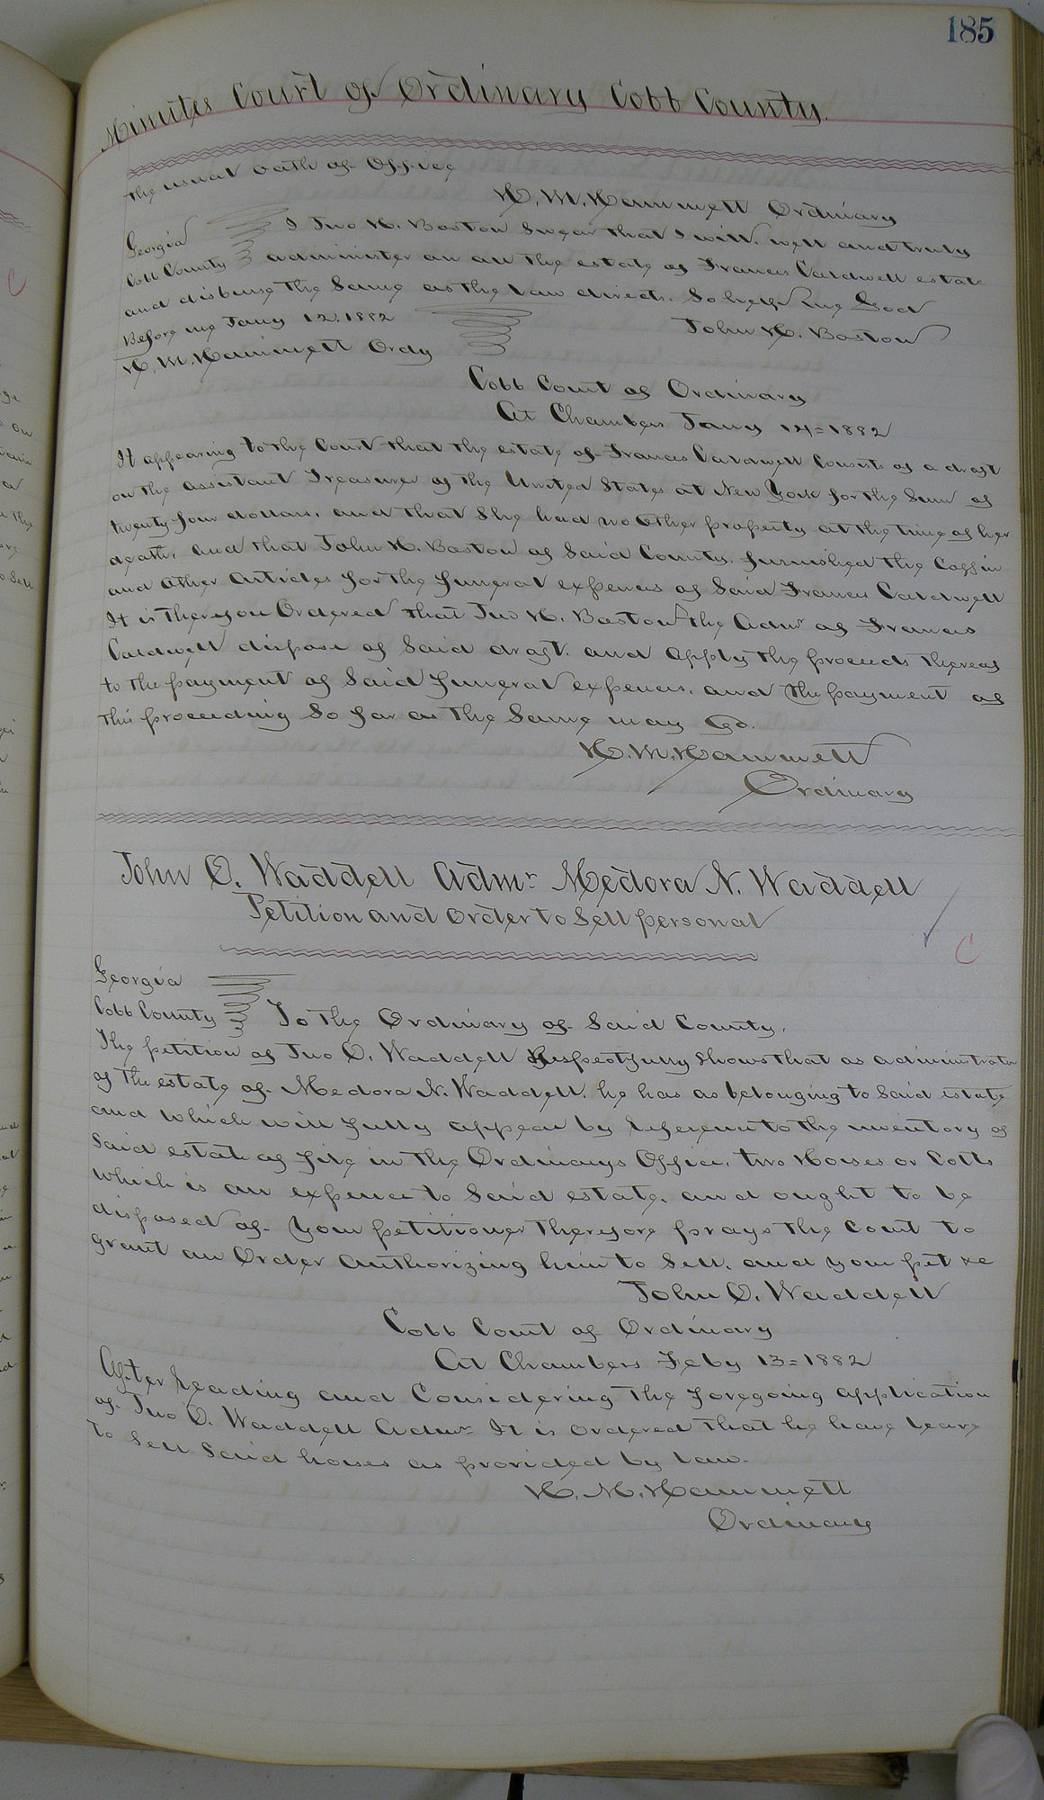 185
Minutes Court of Ordinary Cobb County.
the usual oath of Office
H. M. Hammett Ordinary
Georgia I Jno H. Boston Swear that I will well and truly
Cobb County administer on all the estate of Frances Caldwell estate
and disburse the Same as the law directs. So help me God
Before me Jany 12. 1882 John H. Boston
H. M. Hammett Ordy
Cobb Court of Ordinary
At Chambers Jany 14=1882
It appearing to the Court that the estate of Frances Caldwell Consists of a draft
on the assistant Treasurer of the United States at New York for the Sum of
twenty four dollars, and that She had no other property at the time of her
death, and that John H. Boston of Said County, furnished the Coffin
and other articles for the funeral expences of Said Frances Caldwell
It is Therefore Ordered that Jno H. Boston the Admr of Frances
Caldwell dispose of Said draft. and apply the proceeds thereof
to the payment of Said funeral expences, and the payment of
this proceeding So far as the Same may Go.
H. M. Hammett
Ordinary
John O. Waddell Admr Medora N. Waddell
Petition and order to Sell personal
C
Georgia
Cobb County To the Ordinary of Said County,
The petition of Jno O. Waddell Respectfully Shows that as administrator
of the estate of Medora N. Waddell, he has as belonging to Said estate
and which will fully appear by referenc to the inventory of
Said estate of file in the Ordinarys Office, two Horses or Colts
which is an expence to Said estate, and ought to be
disposed of. Your petitioner therefore prays the Court to
grant an Order authorizing him to Sell, and your pet &c
John O. Waddell
Cobb Court of Ordinary
At Chambers Feby 13=1882
After reading and Considering the foregoing application
of Jno O. Waddell Admr It is ordered that he have leave
to Sell Said horses as provided by law.
H. M. Hammett
Ordinary